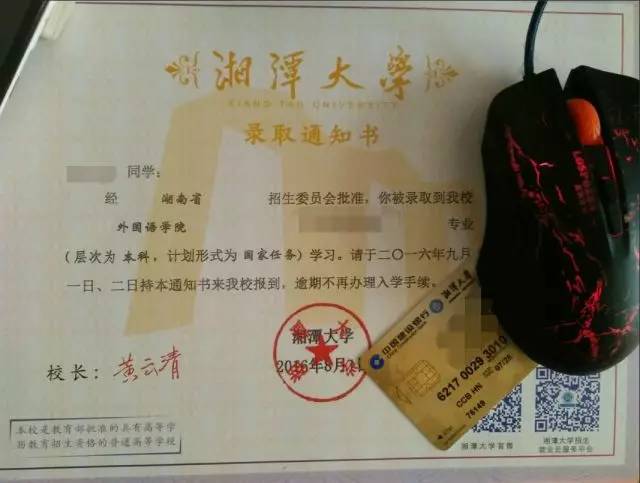 湘潭大学
XIANG TAN UNIVERSITY
录取通知书
同学:
经 湖南省 招生委员会批准,你被录取到我校
外国语学院 专业
(层次为 本科,计划形式为 国家任务)学习。请于二〇一六年九月
一日、二日持本通知书来我校报到,逾期不再办理入学手续。
湘潭大学
2016年8月
校长:黄云清
本校是教育部批准的具有高等学
历教育招生资格的普通高等学校
湘潭大学
中国建设银行
6217 0029 3010
CCB HN 07/26
76149
湘潭大学官微
湘潭大学招生
就业云服务平台